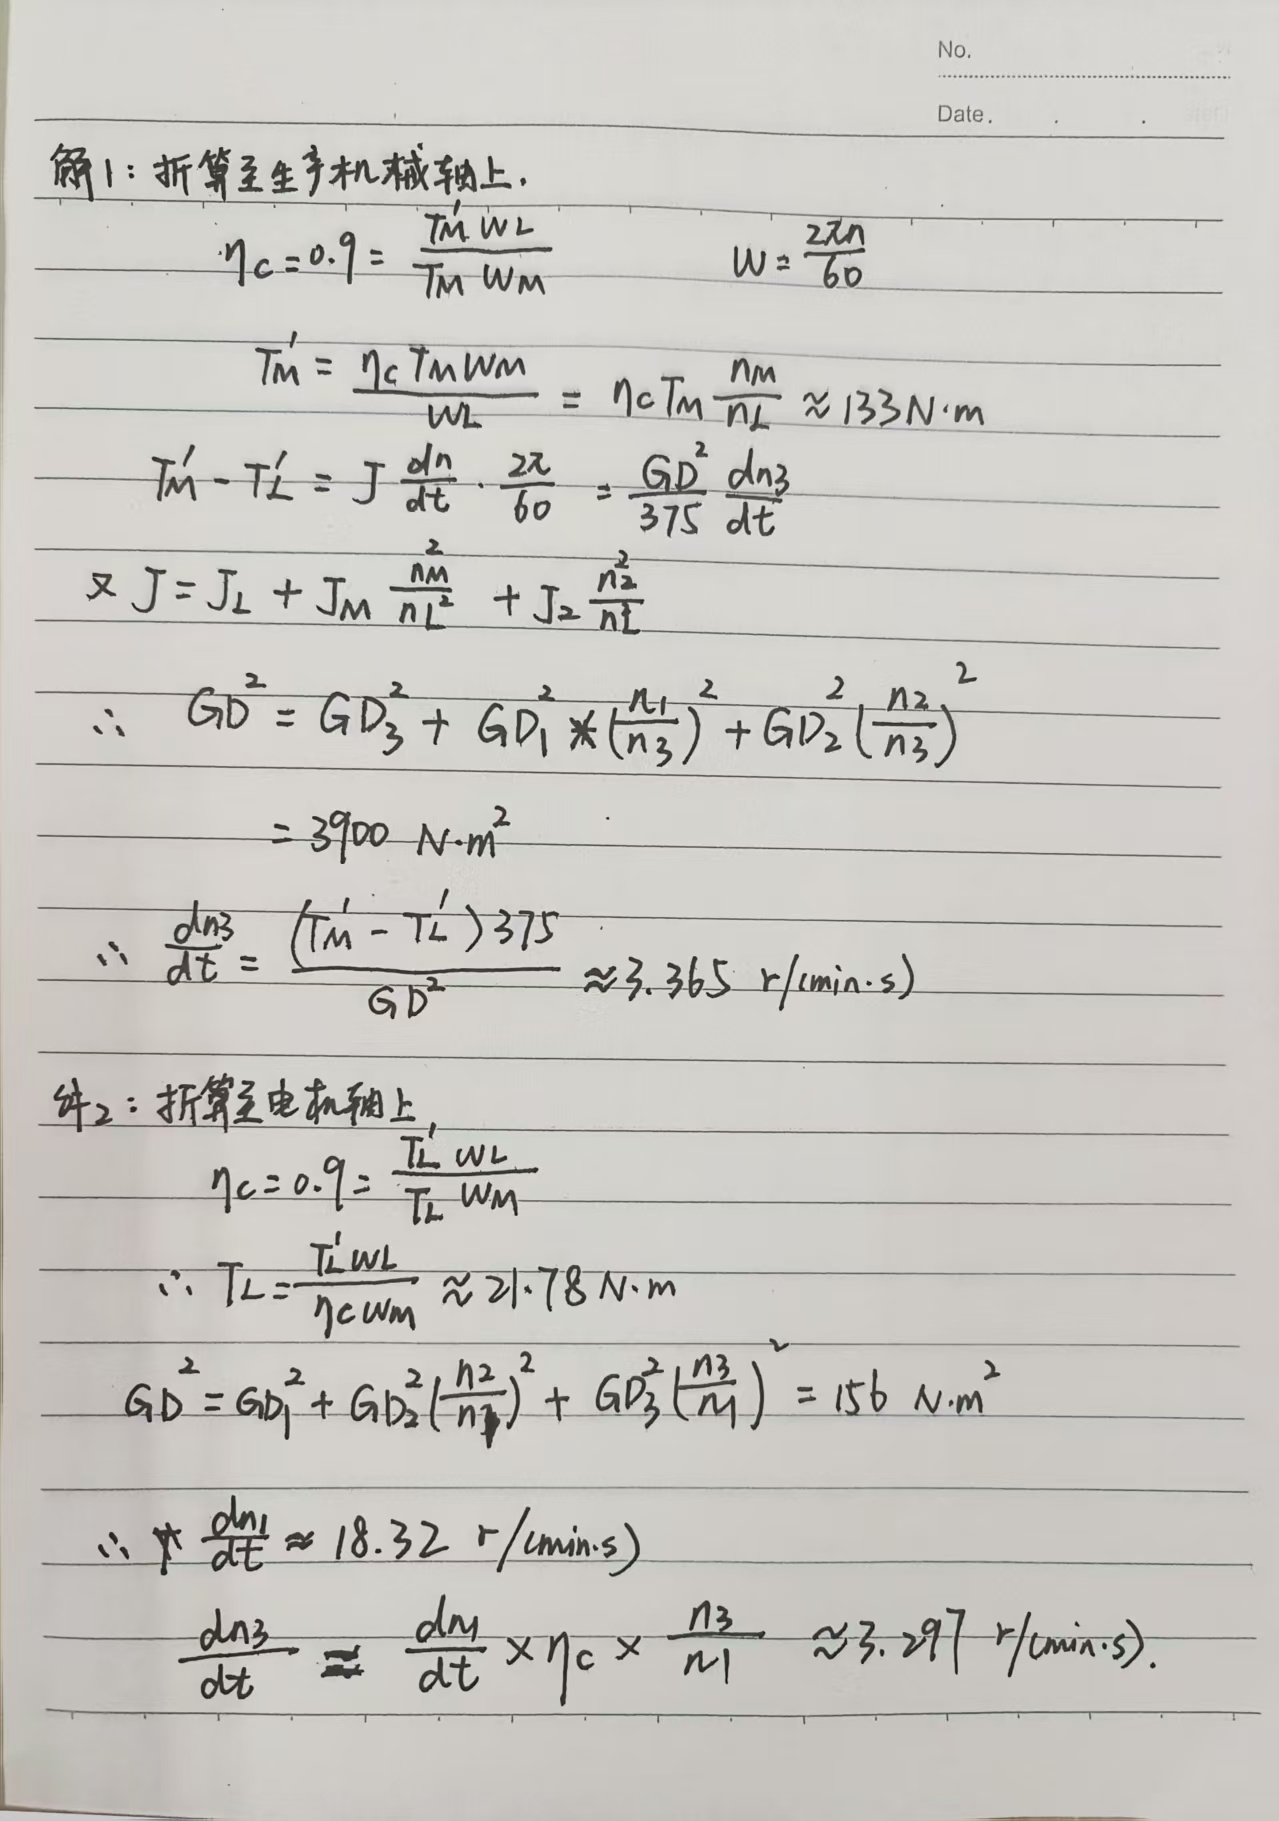 No.
Date. . .
解1：折算至生产机械轴上.
ηc=0.9= TM' WL / TM WM    W= 2πn / 60
TM' = ηc TM WM / WL = ηc TM nM / nL ≈ 133 N·m
TM' - TL' = J dn/dt · 2π/60 = GD²/375 dn3/dt
又 J = JL + JM nM²/nL² + J2 n2²/nL²
∴ GD² = GD3² + GD1² * (n1/n3)² + GD2² (n2/n3)²
= 3900 N·m²
∴ dn3/dt = (TM' - TL')375 / GD² ≈ 3.365 r/(min·s)
2：折算至电机轴上,
ηc=0.9= TL' WL / TL WM
∴ TL = TL' WL / ηc WM ≈ 21.78 N·m
GD² = GD1² + GD2² (n2/n1)² + GD3² (n3/n1)² = 156 N·m²
∴ dn1/dt ≈ 18.32 r/(min·s)
dn3/dt = dn1/dt × ηc × n3/n1 ≈ 3.297 r/(min·s).